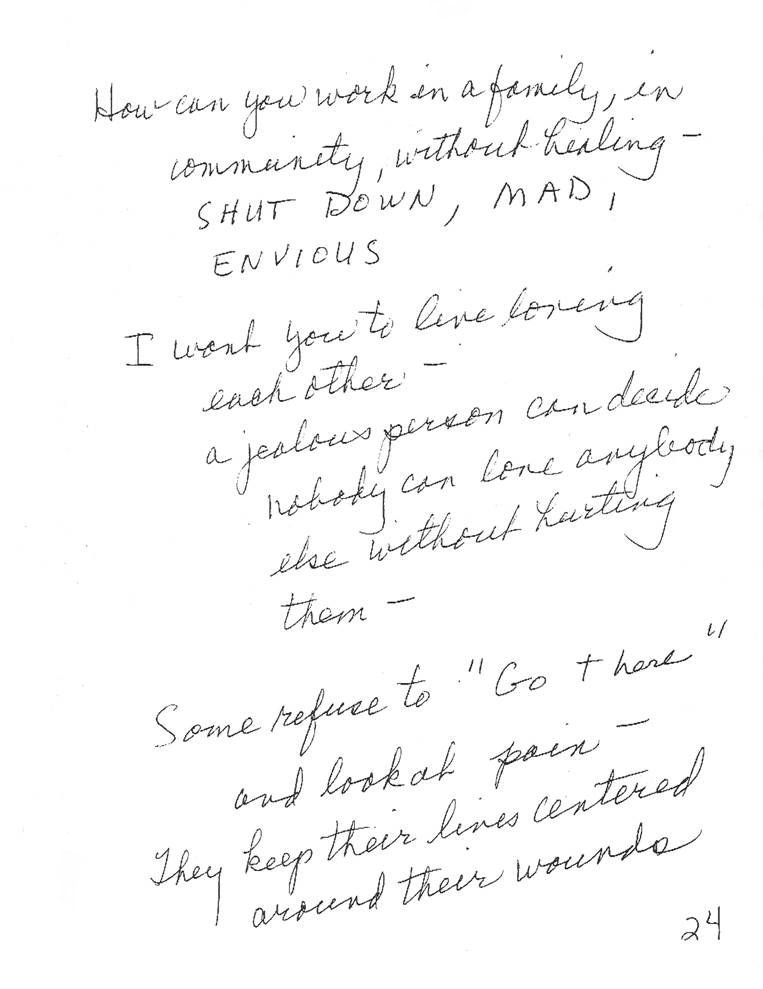 How can you work in a family, in
community, without healing –
SHUT DOWN, MAD,
ENVIOUS
I want you to live loving
each other –
a jealous person can decide
nobody can love anybody
else without hurting
them –
Some refuse to "Go there"
and look at pain –
They keep their lives centered
around their wounds
24